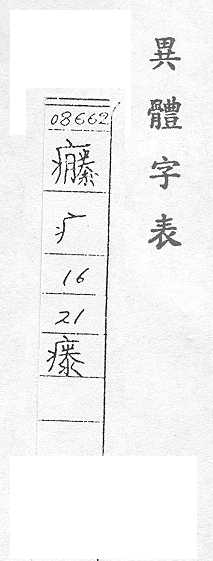 異體字表
08662
疒
16
21